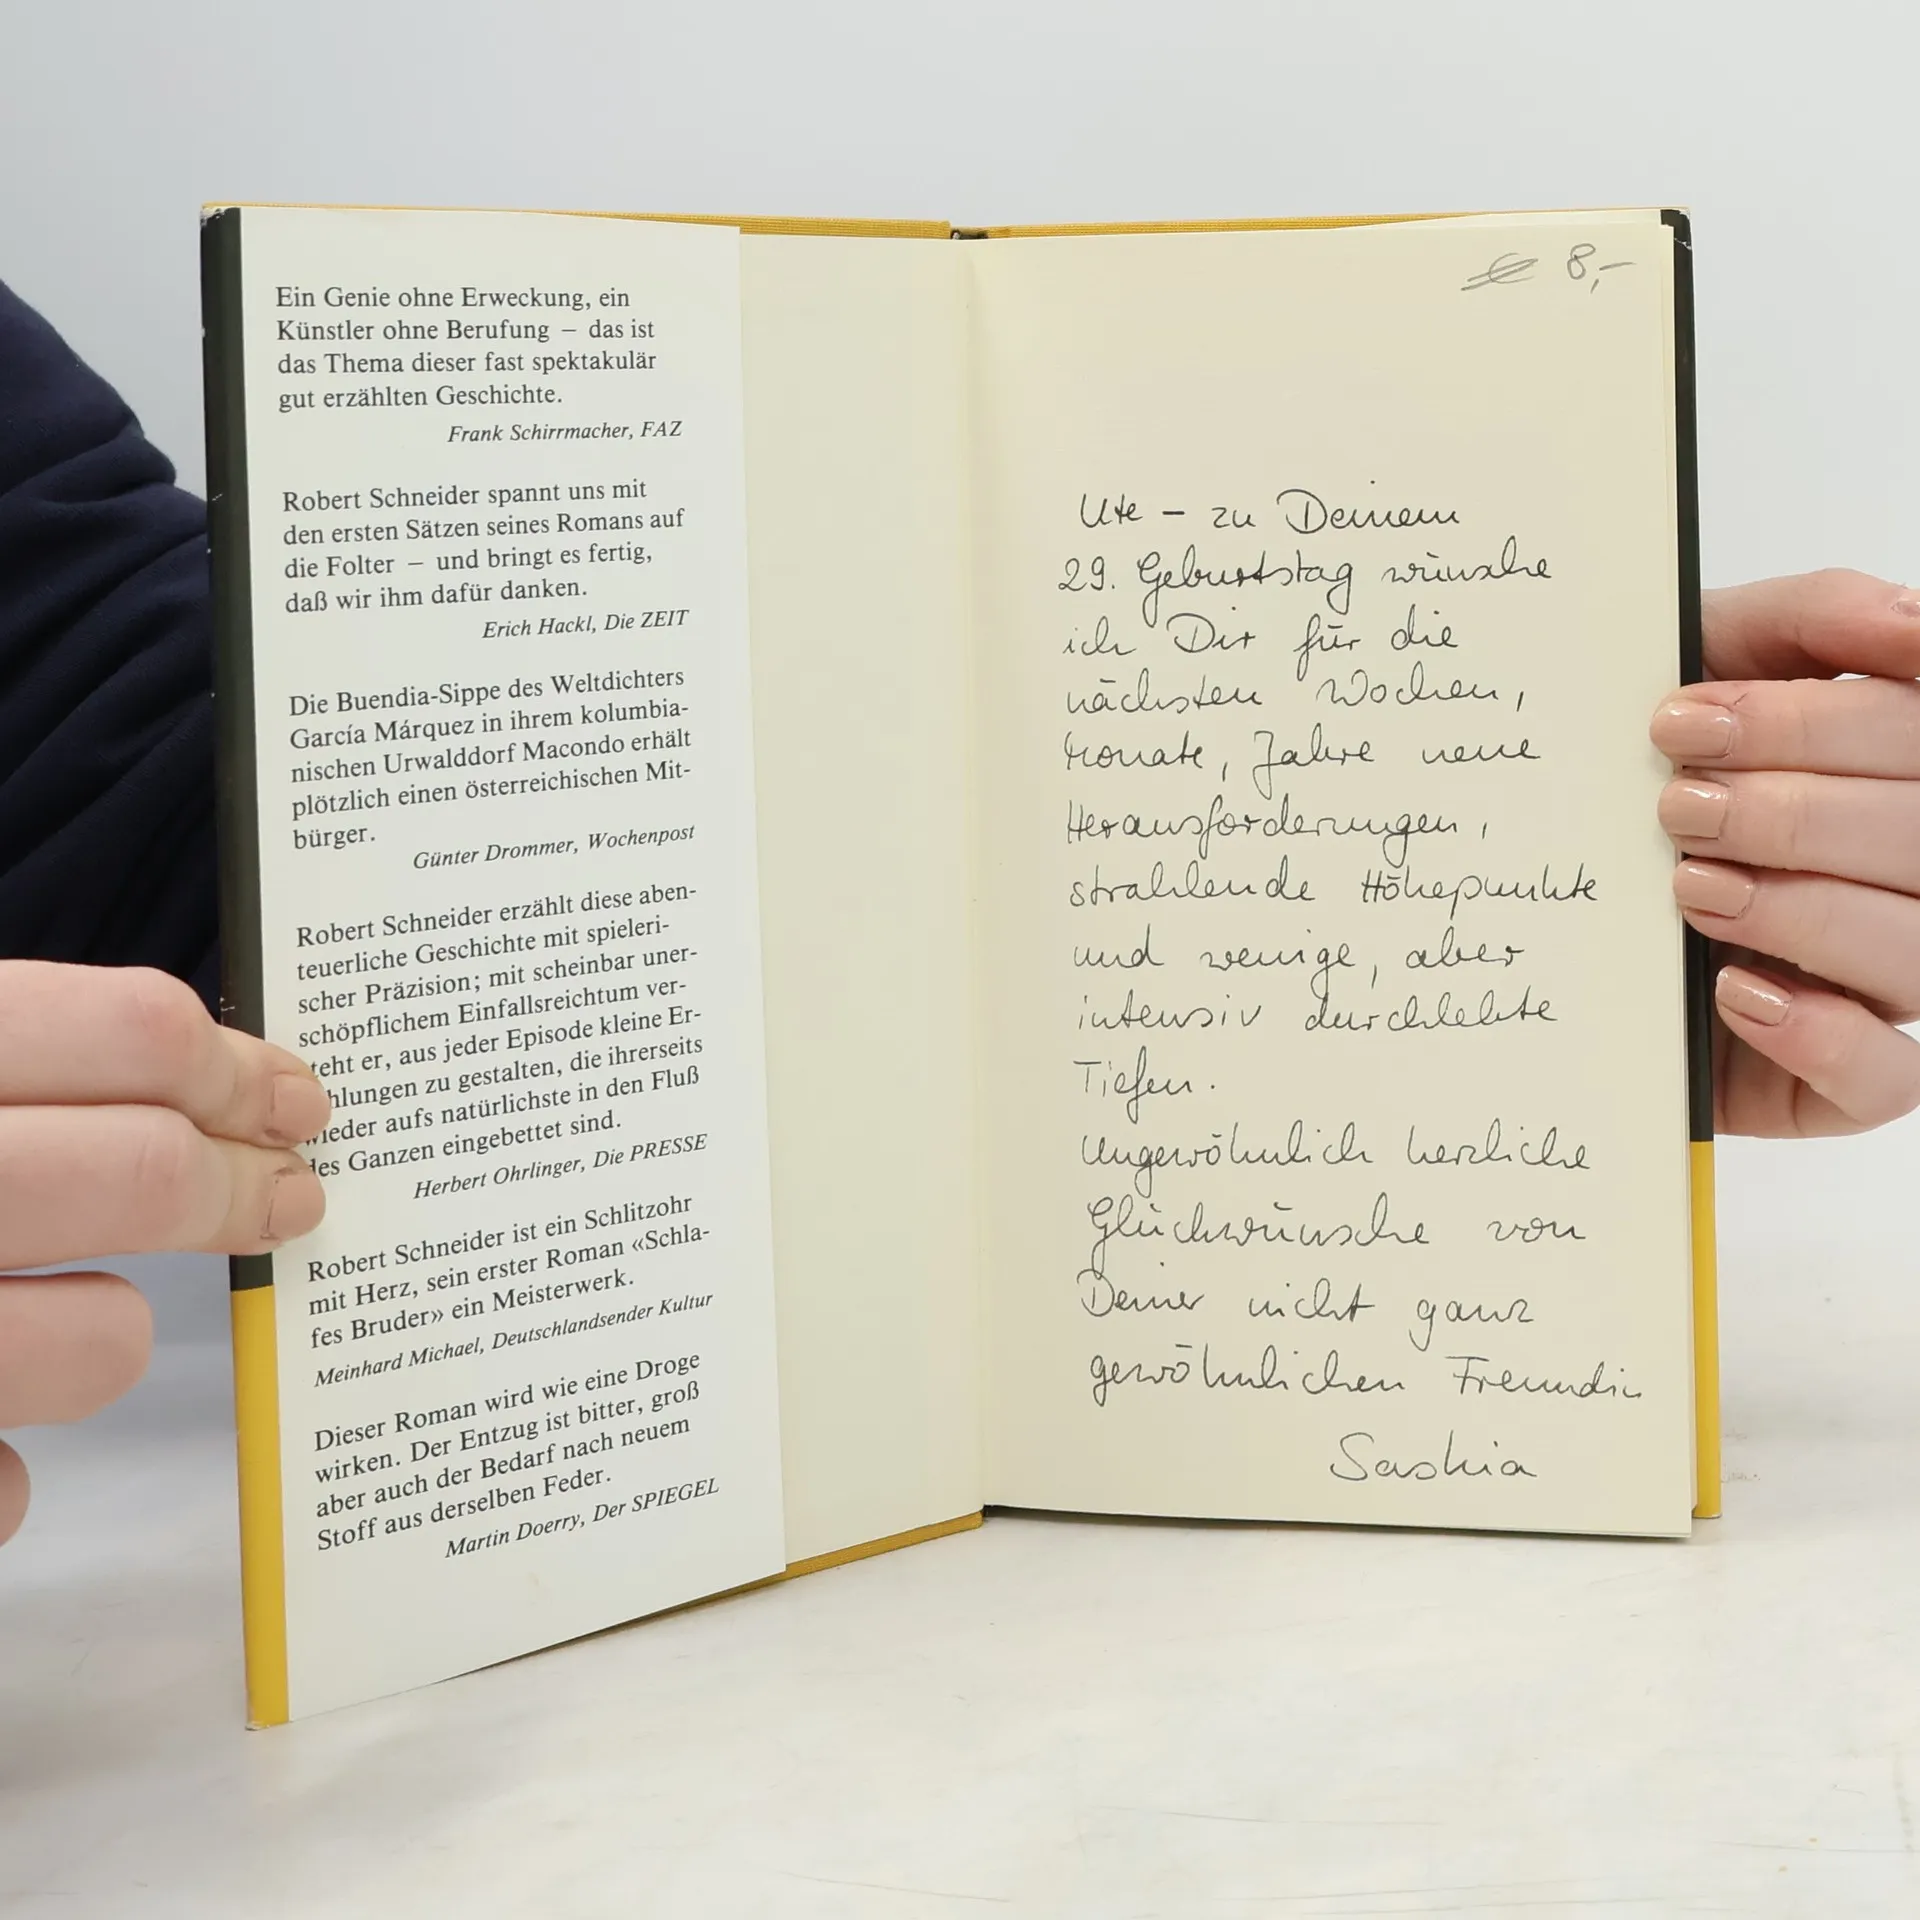 Ein Genie ohne Erweckung, ein
Künstler ohne Berufung – das ist
das Thema dieser fast spektakulär
gut erzählten Geschichte.
Frank Schirrmacher, FAZ
Robert Schneider spannt uns mit
den ersten Sätzen seines Romans auf
die Folter – und bringt es fertig,
daß wir ihm dafür danken.
Erich Hackl, Die ZEIT
Die Buendia-Sippe des Weltdichters
García Márquez in ihrem kolumbia-
nischen Urwalddorf Macondo erhält
plötzlich einen österreichischen Mit-
bürger.
Günter Drommer, Wochenpost
Robert Schneider erzählt diese aben-
teuerliche Geschichte mit spieleri-
scher Präzision; mit scheinbar uner-
schöpflichem Einfallsreichtum ver-
teht er, aus jeder Episode kleine Er-
hlungen zu gestalten, die ihrerseits
wieder aufs natürlichste in den Fluß
des Ganzen eingebettet sind.
Herbert Ohrlinger, Die PRESSE
Robert Schneider ist ein Schlitzohr
mit Herz, sein erster Roman «Schla-
fes Bruder» ein Meisterwerk.
Meinhard Michael, Deutschlandsender Kultur
Dieser Roman wird wie eine Droge
wirken. Der Entzug ist bitter, groß
aber auch der Bedarf nach neuem
Stoff aus derselben Feder.
Martin Doerry, Der SPIEGEL
€ 8,-
Ute – zu Deinem
29. Geburtstag wünsche
ich Dir für die
nächsten Wochen,
Monate, Jahre neue
Herausforderungen,
strahlende Höhepunkte
und wenige, aber
intensiv durchlebte
Tiefen.
Ungewöhnlich herzliche
Glückwünsche von
Deiner nicht ganz
gewöhnlichen Freundin
Saskia